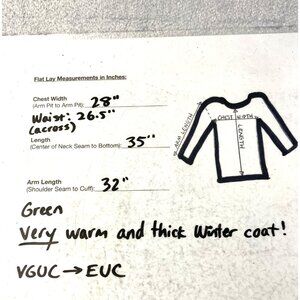 Flat Lay Measurements in Inches:
Chest Width
(Arm Pit to Arm Pit): 28"
Waist: 26.5"
(across)
Length
(Center of Neck Seam to Bottom): 35"
ARM LENGTH
CHEST WIDTH
LENGTH
Arm Length
(Shoulder Seam to Cuff): 32"
Green
Very warm and thick Winter coat!
VGUC → EUC